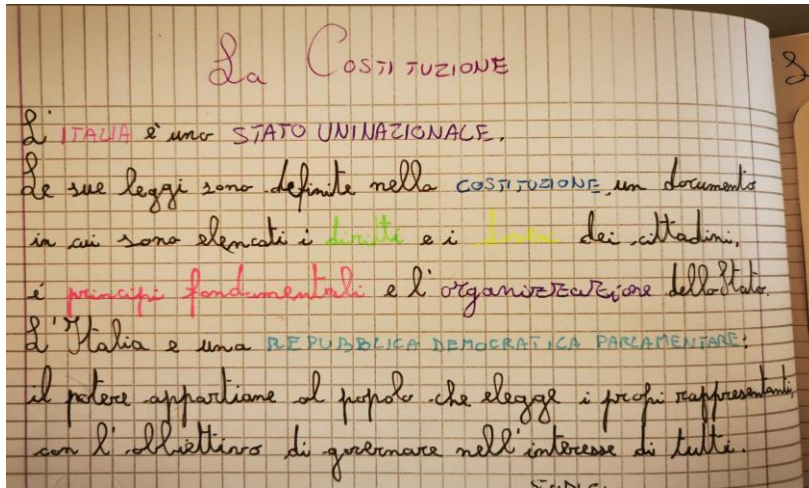 La COSTITUZIONE
L'ITALIA è uno STATO UNINAZIONALE.
Le sue leggi sono definite nella COSTITUZIONE, un documento
in cui sono elencati i diritti e i doveri dei cittadini,
i principi fondamentali e l'organizzazione dello Stato.
L'Italia e una REPUBBLICA DEMOCRATICA PARLAMENTARE:
il potere appartiane al popolo che elegge i propi rappresentanti,
con l'obbiettivo di governare nell'interesse di tutti.